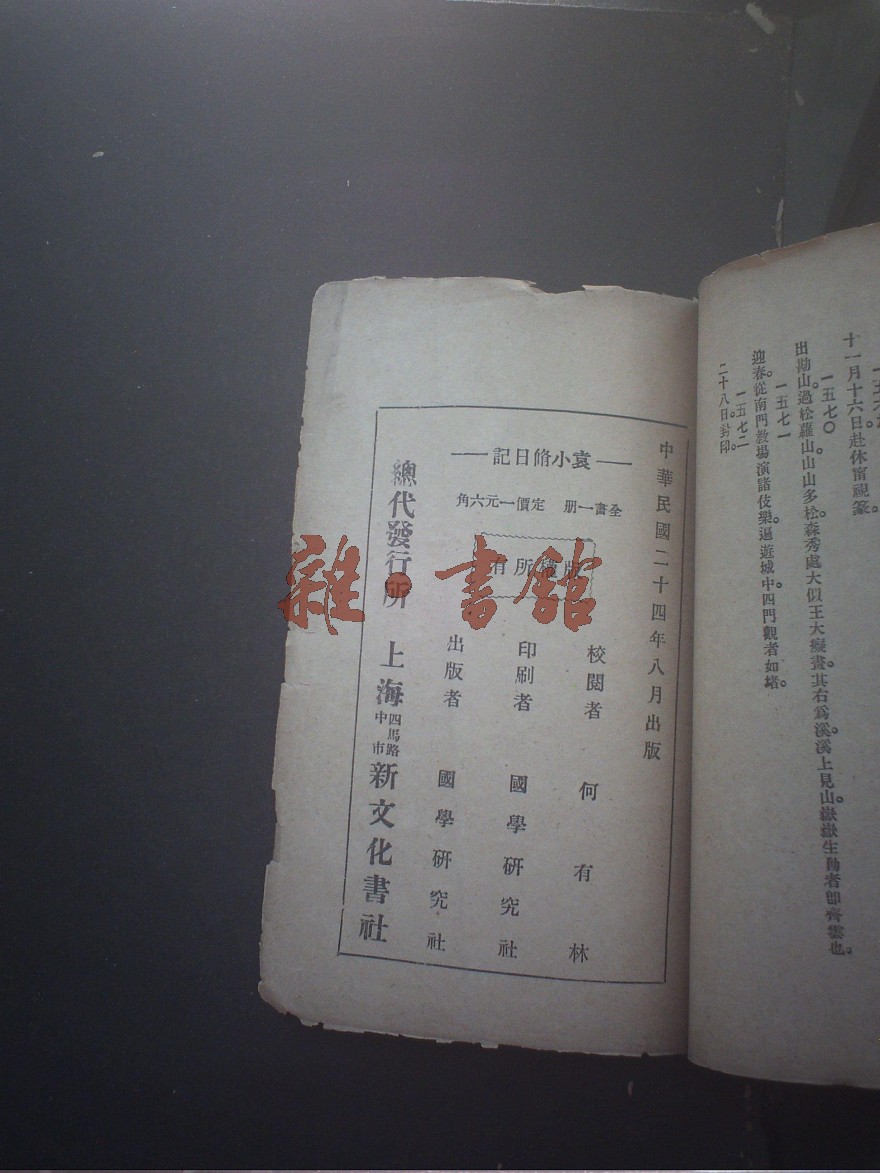 十一月十六日赴休甯視篆。
一五七〇
出勘山。過松蘿山。山山多松。森秀處大似王大癡畫。其右爲溪。溪上見山嶽嶽生動者。卽齊雲也。
一五七一
迎春。從南門教場演諸伎樂。遍遊城中四門。觀者如堵。
一五七二
二十八日。封印。
中華民國二十四年八月出版
袁小脩日記
全書一册 定價一元六角
版權所有
校閱者 何有林
印刷者 國學研究社
出版者 國學研究社
總代發行所 上海四馬路中市新文化書社
雜·書館